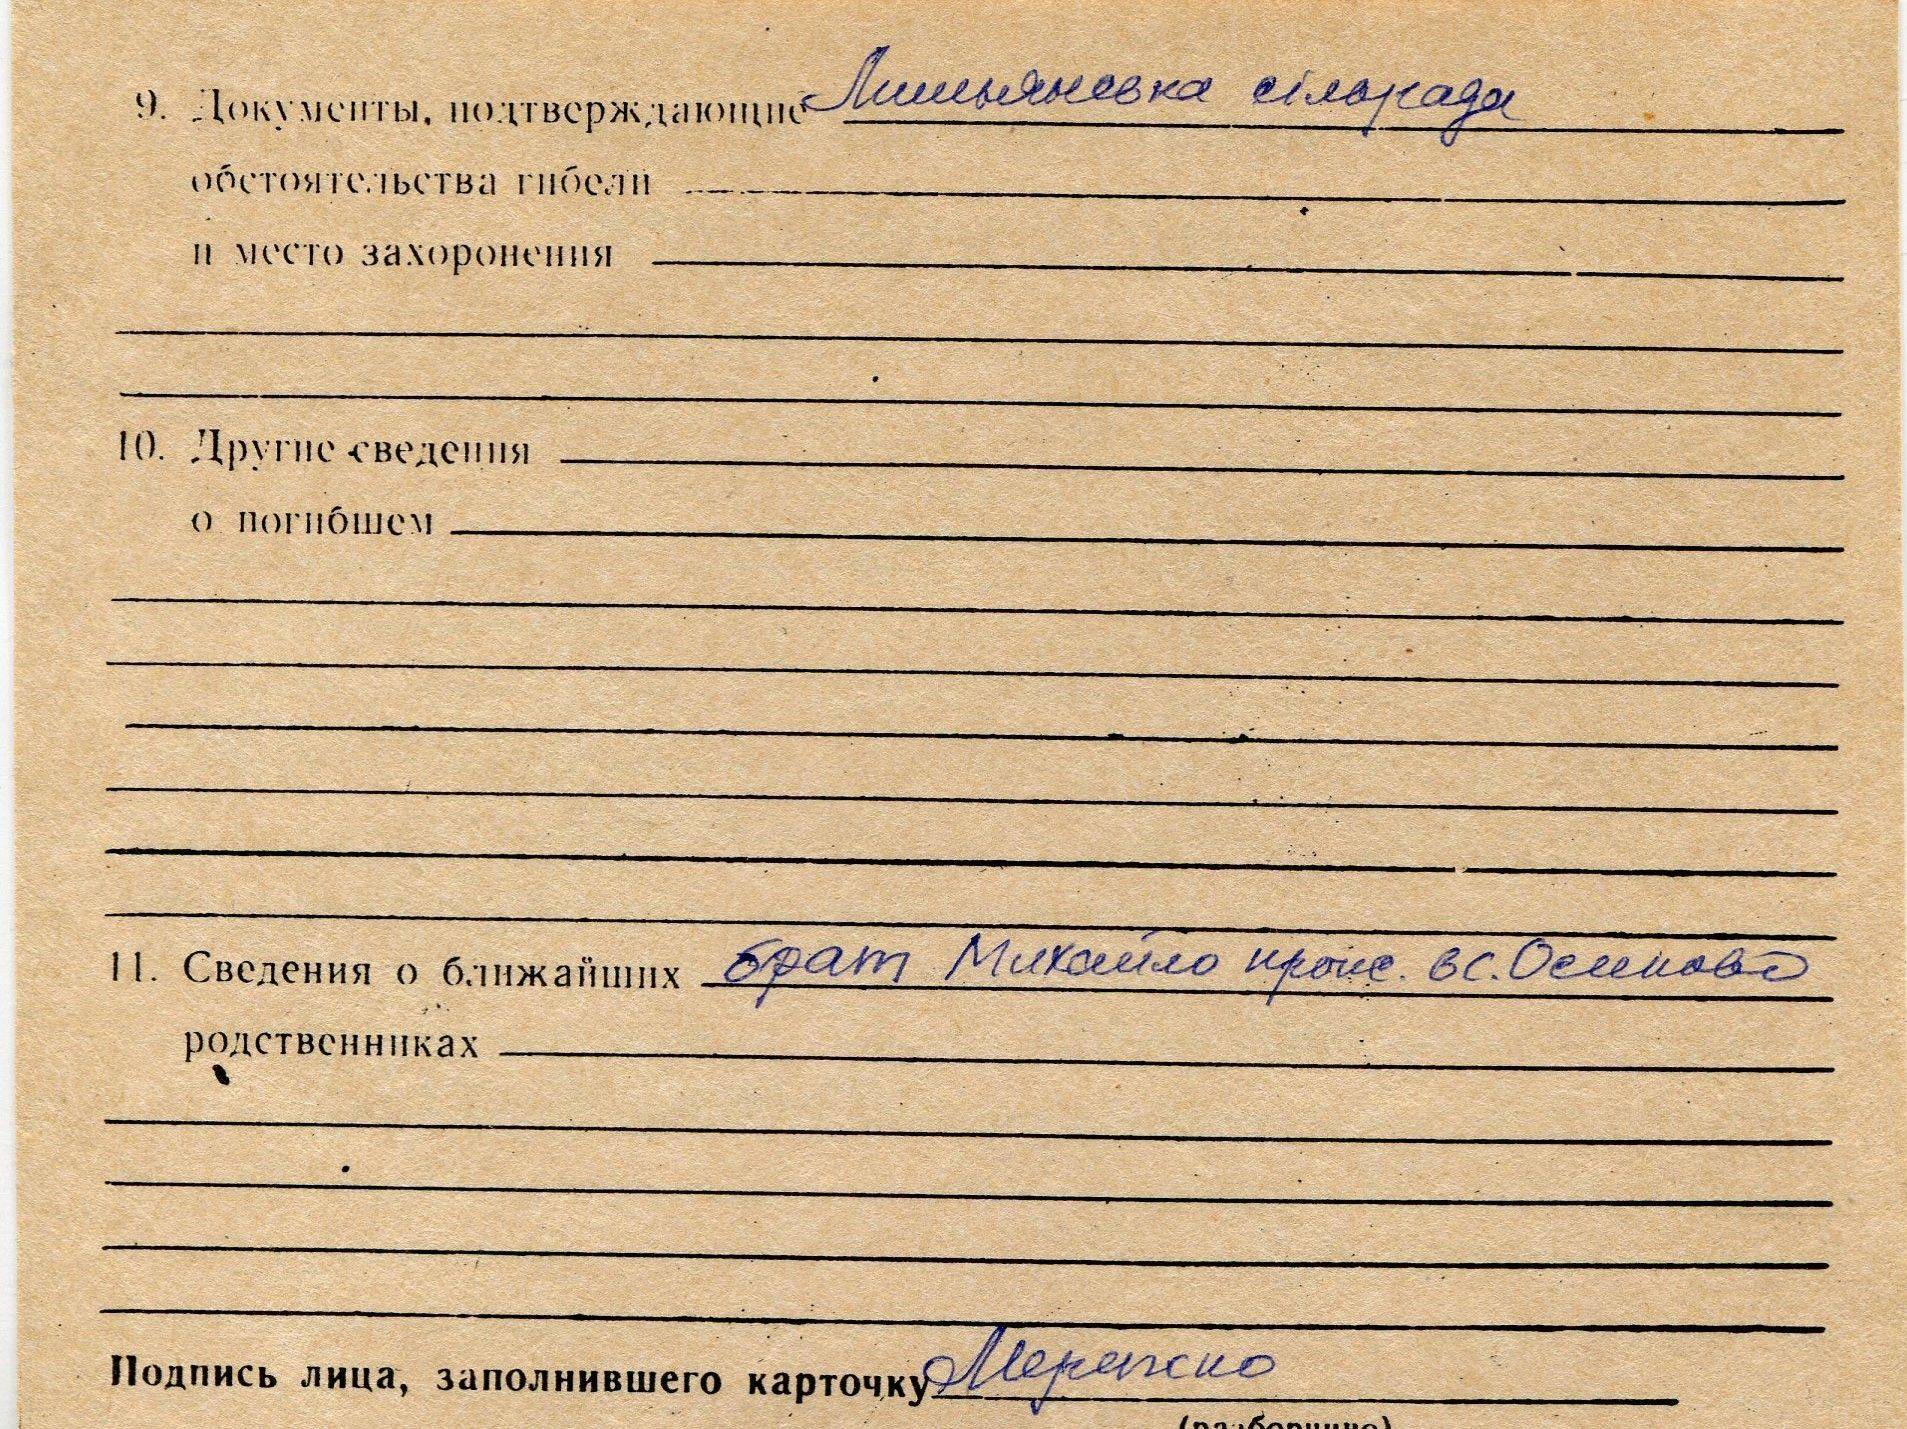 9. Документы, подтверждающие Лишняневка сільрада
обстоятельства гибели
и место захоронения
10. Другие сведения
о погибшем
11. Сведения о ближайших брат Михайло прож. в с. Осиново
родственниках
Подпись лица, заполнившего карточку
(разборчиво)